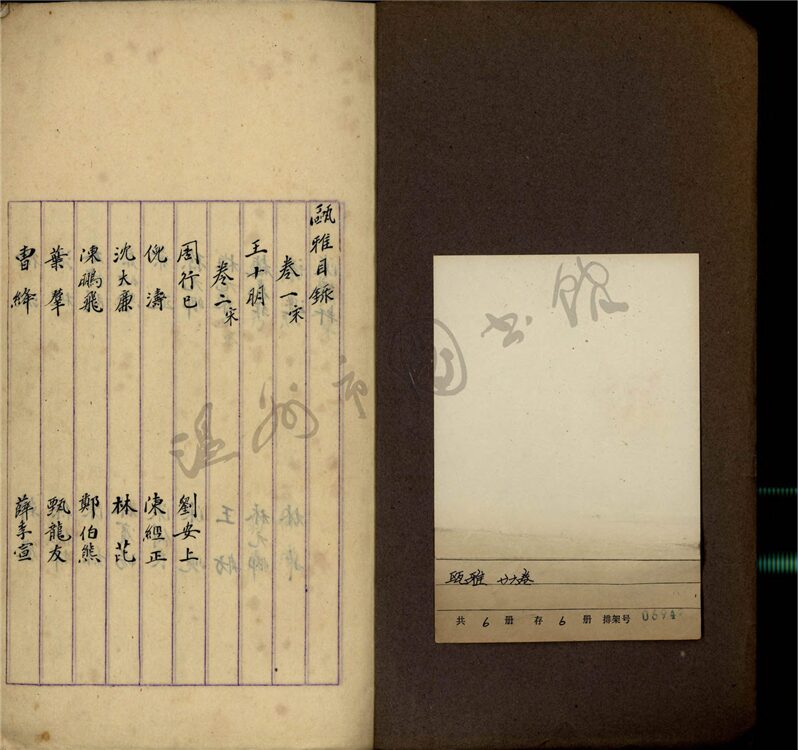 甌雅目錄
卷一宋
王十朋
卷二宋
周行己　劉安上
倪濤　陳經正
沈大廉　林苉
陳鵬飛　鄭伯熊
葉羣　甄龍友
曹绛　薛季宣
甌雅 廿六卷
共 6 册 存 6 册 排架号 0694
温州市图书馆